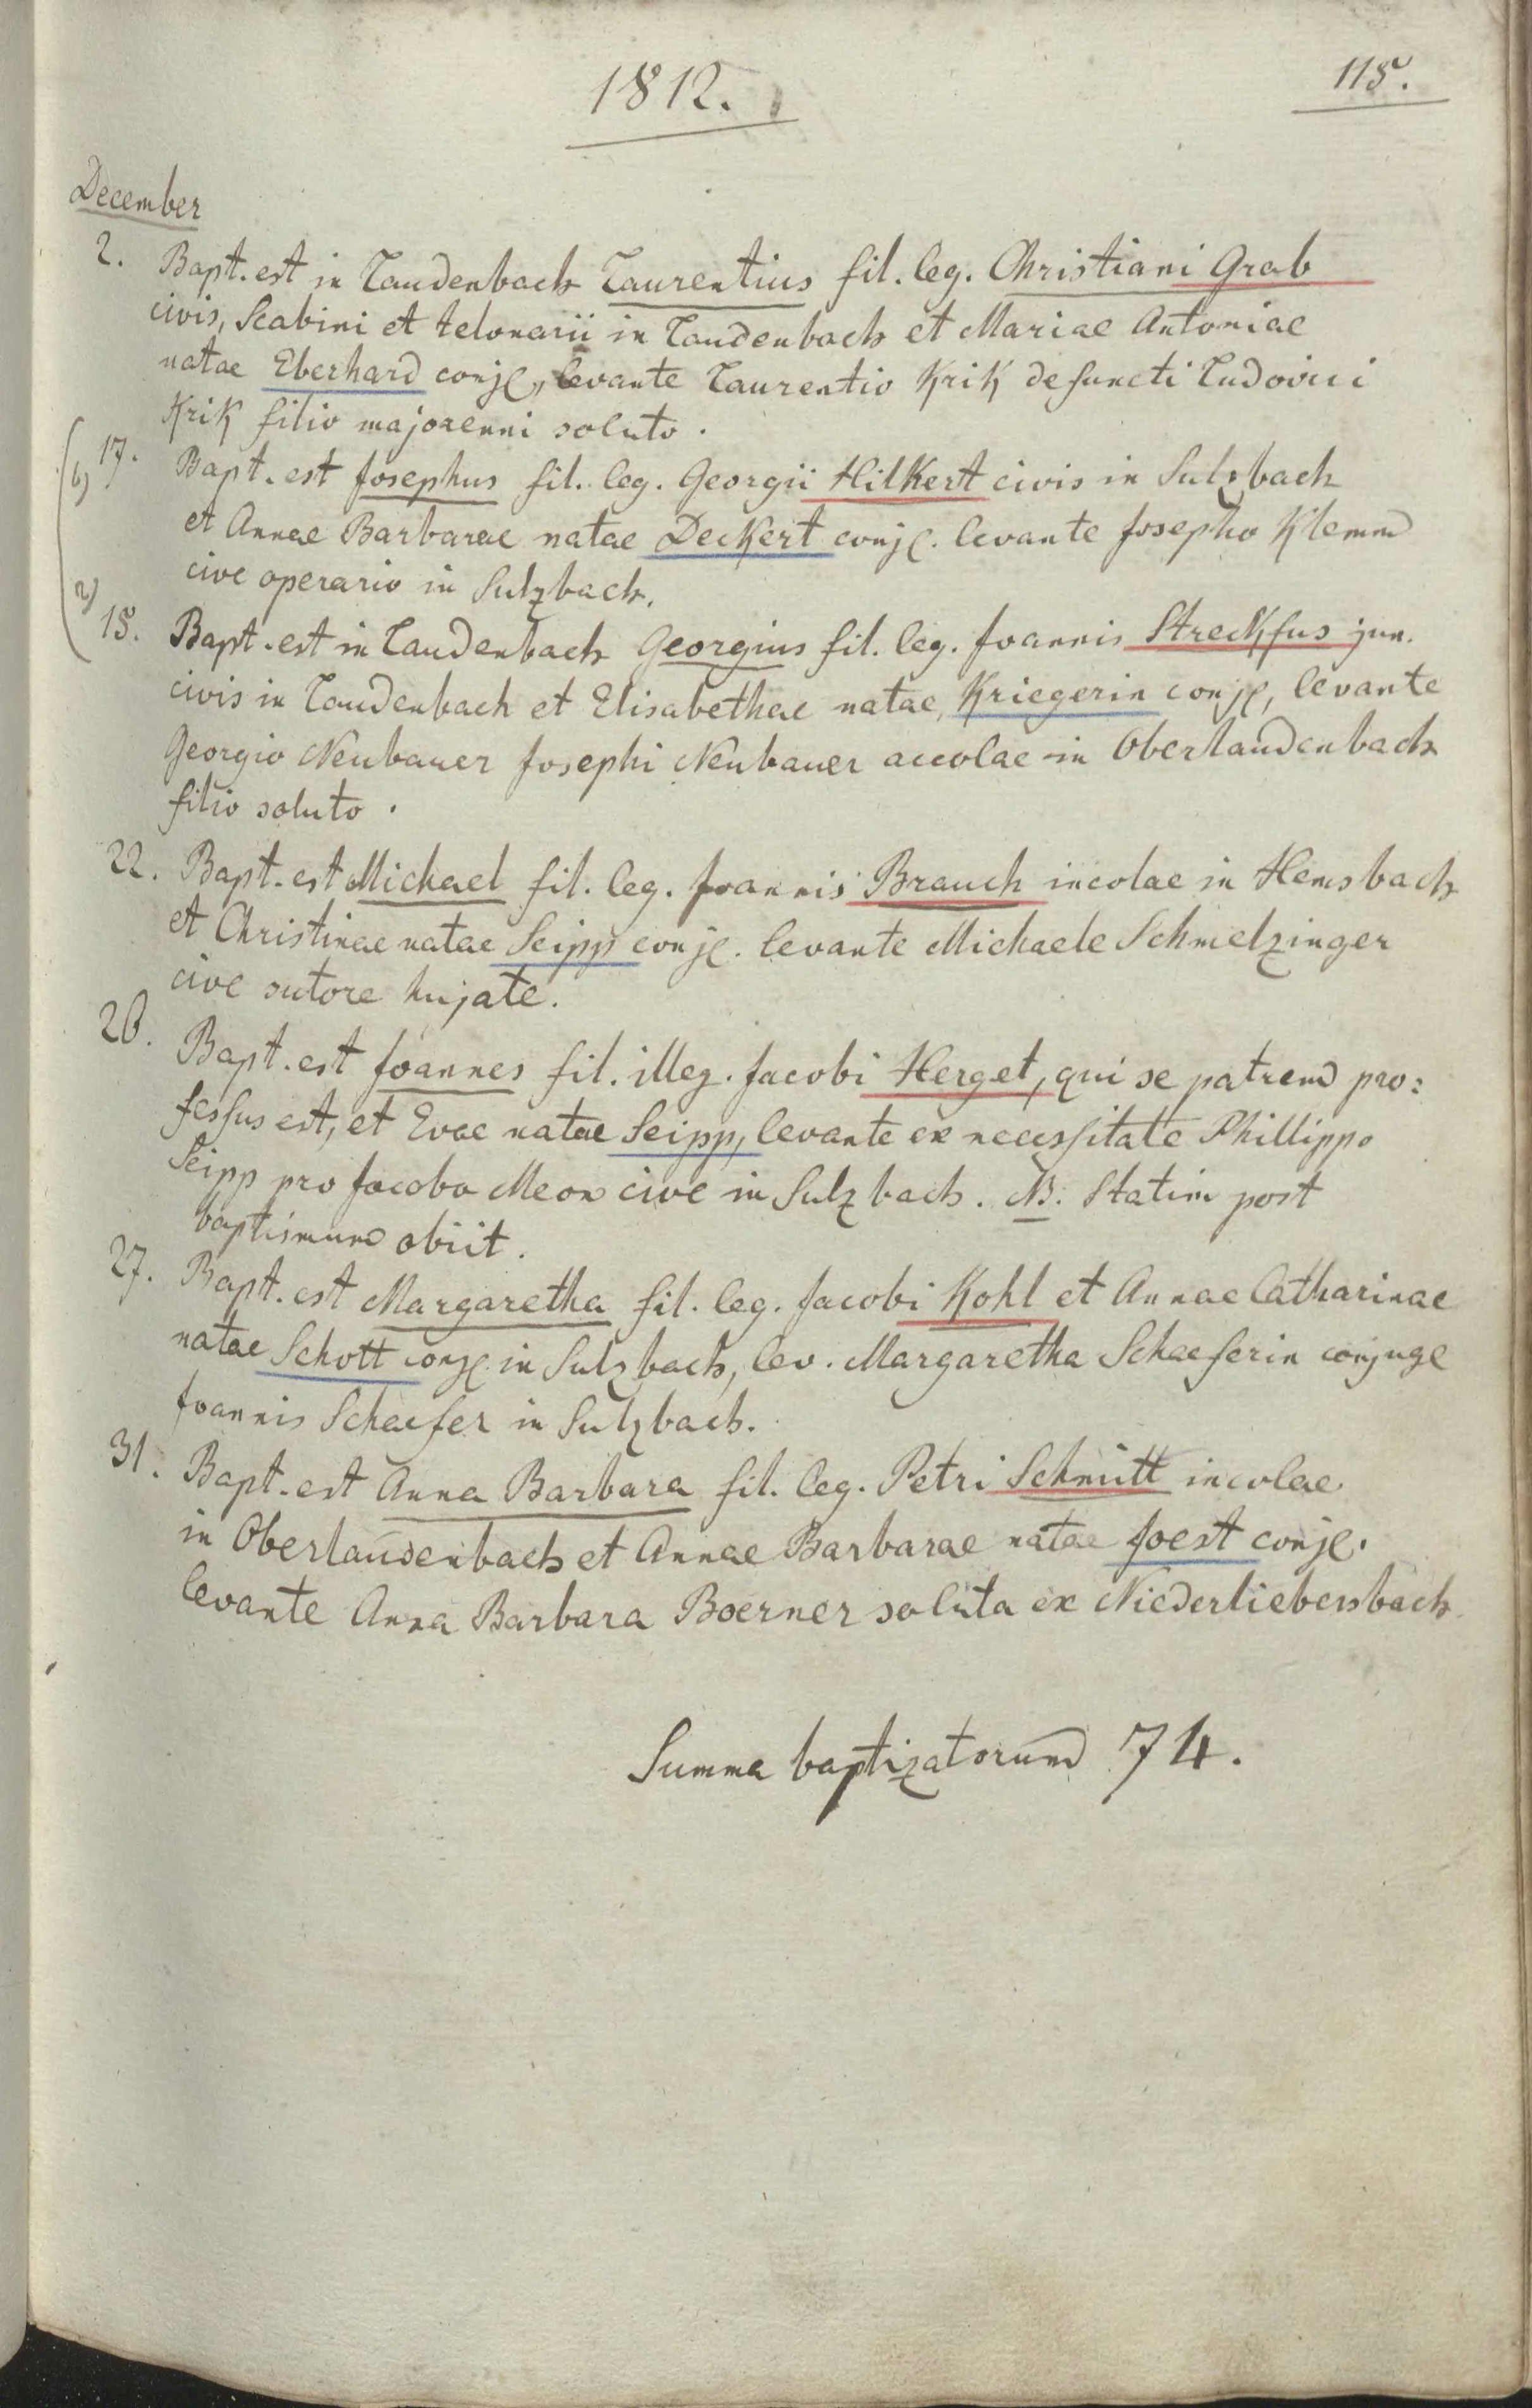 1812.
115.
December
2. Bapt. est in Laudenbach Laurentius fil. leg. Christiani Grab
civis, Scabini et telonarii in Laudenbach et Mariae Antoniae
natae Eberhard conjg, levante Laurentio Krik defuncti Ludovici
Krik filio majorenni soluto.
b) 17. Bapt. est Josephus fil. leg. Georgii Hilkert civis in Sulzbach
et Annae Barbarae natae Deckert conjg. levante Josepho Klemm
cive operario in Sulzbach.
a) 15. Bapt. est in Laudenbach Georgius fil. leg. Joannis Streckfus jun.
civis in Laudenbach et Elisabethae natae Kriegerin conjg, levante
Georgio Neubauer Josephi Neubauer accolae in Oberlaudenbach
filio soluto.
22. Bapt. est Michael fil. leg. Joannis Brauch incolae in Hemsbach
et Christinae natae Seipp conjg. levante Michaele Schmelzinger
cive sutore hujate.
26. Bapt. est Joannes fil. illeg. Jacobi Herget, qui se patrem pro:
fessus est, et Evae natae Seipp, levante ex necessitate Phillippo
Seipp pro Jacobo Meon cive in Sulzbach. NB. Statim post
baptismum obiit.
27. Bapt. est Margaretha fil. leg. Jacobi Kohl et Annae Catharinae
natae Schott conjg in Sulzbach, lev. Margaretha Schaeferin conjuge
Joannis Schaefer in Sulzbach.
31. Bapt. est Anna Barbara fil. leg. Petri Schmitt incolae
in Oberlaudenbach et Annae Barbarae natae Joest conjg.
levante Anna Barbara Boerner soluta ex Niederliebersbach
Summa baptizatorum 74.